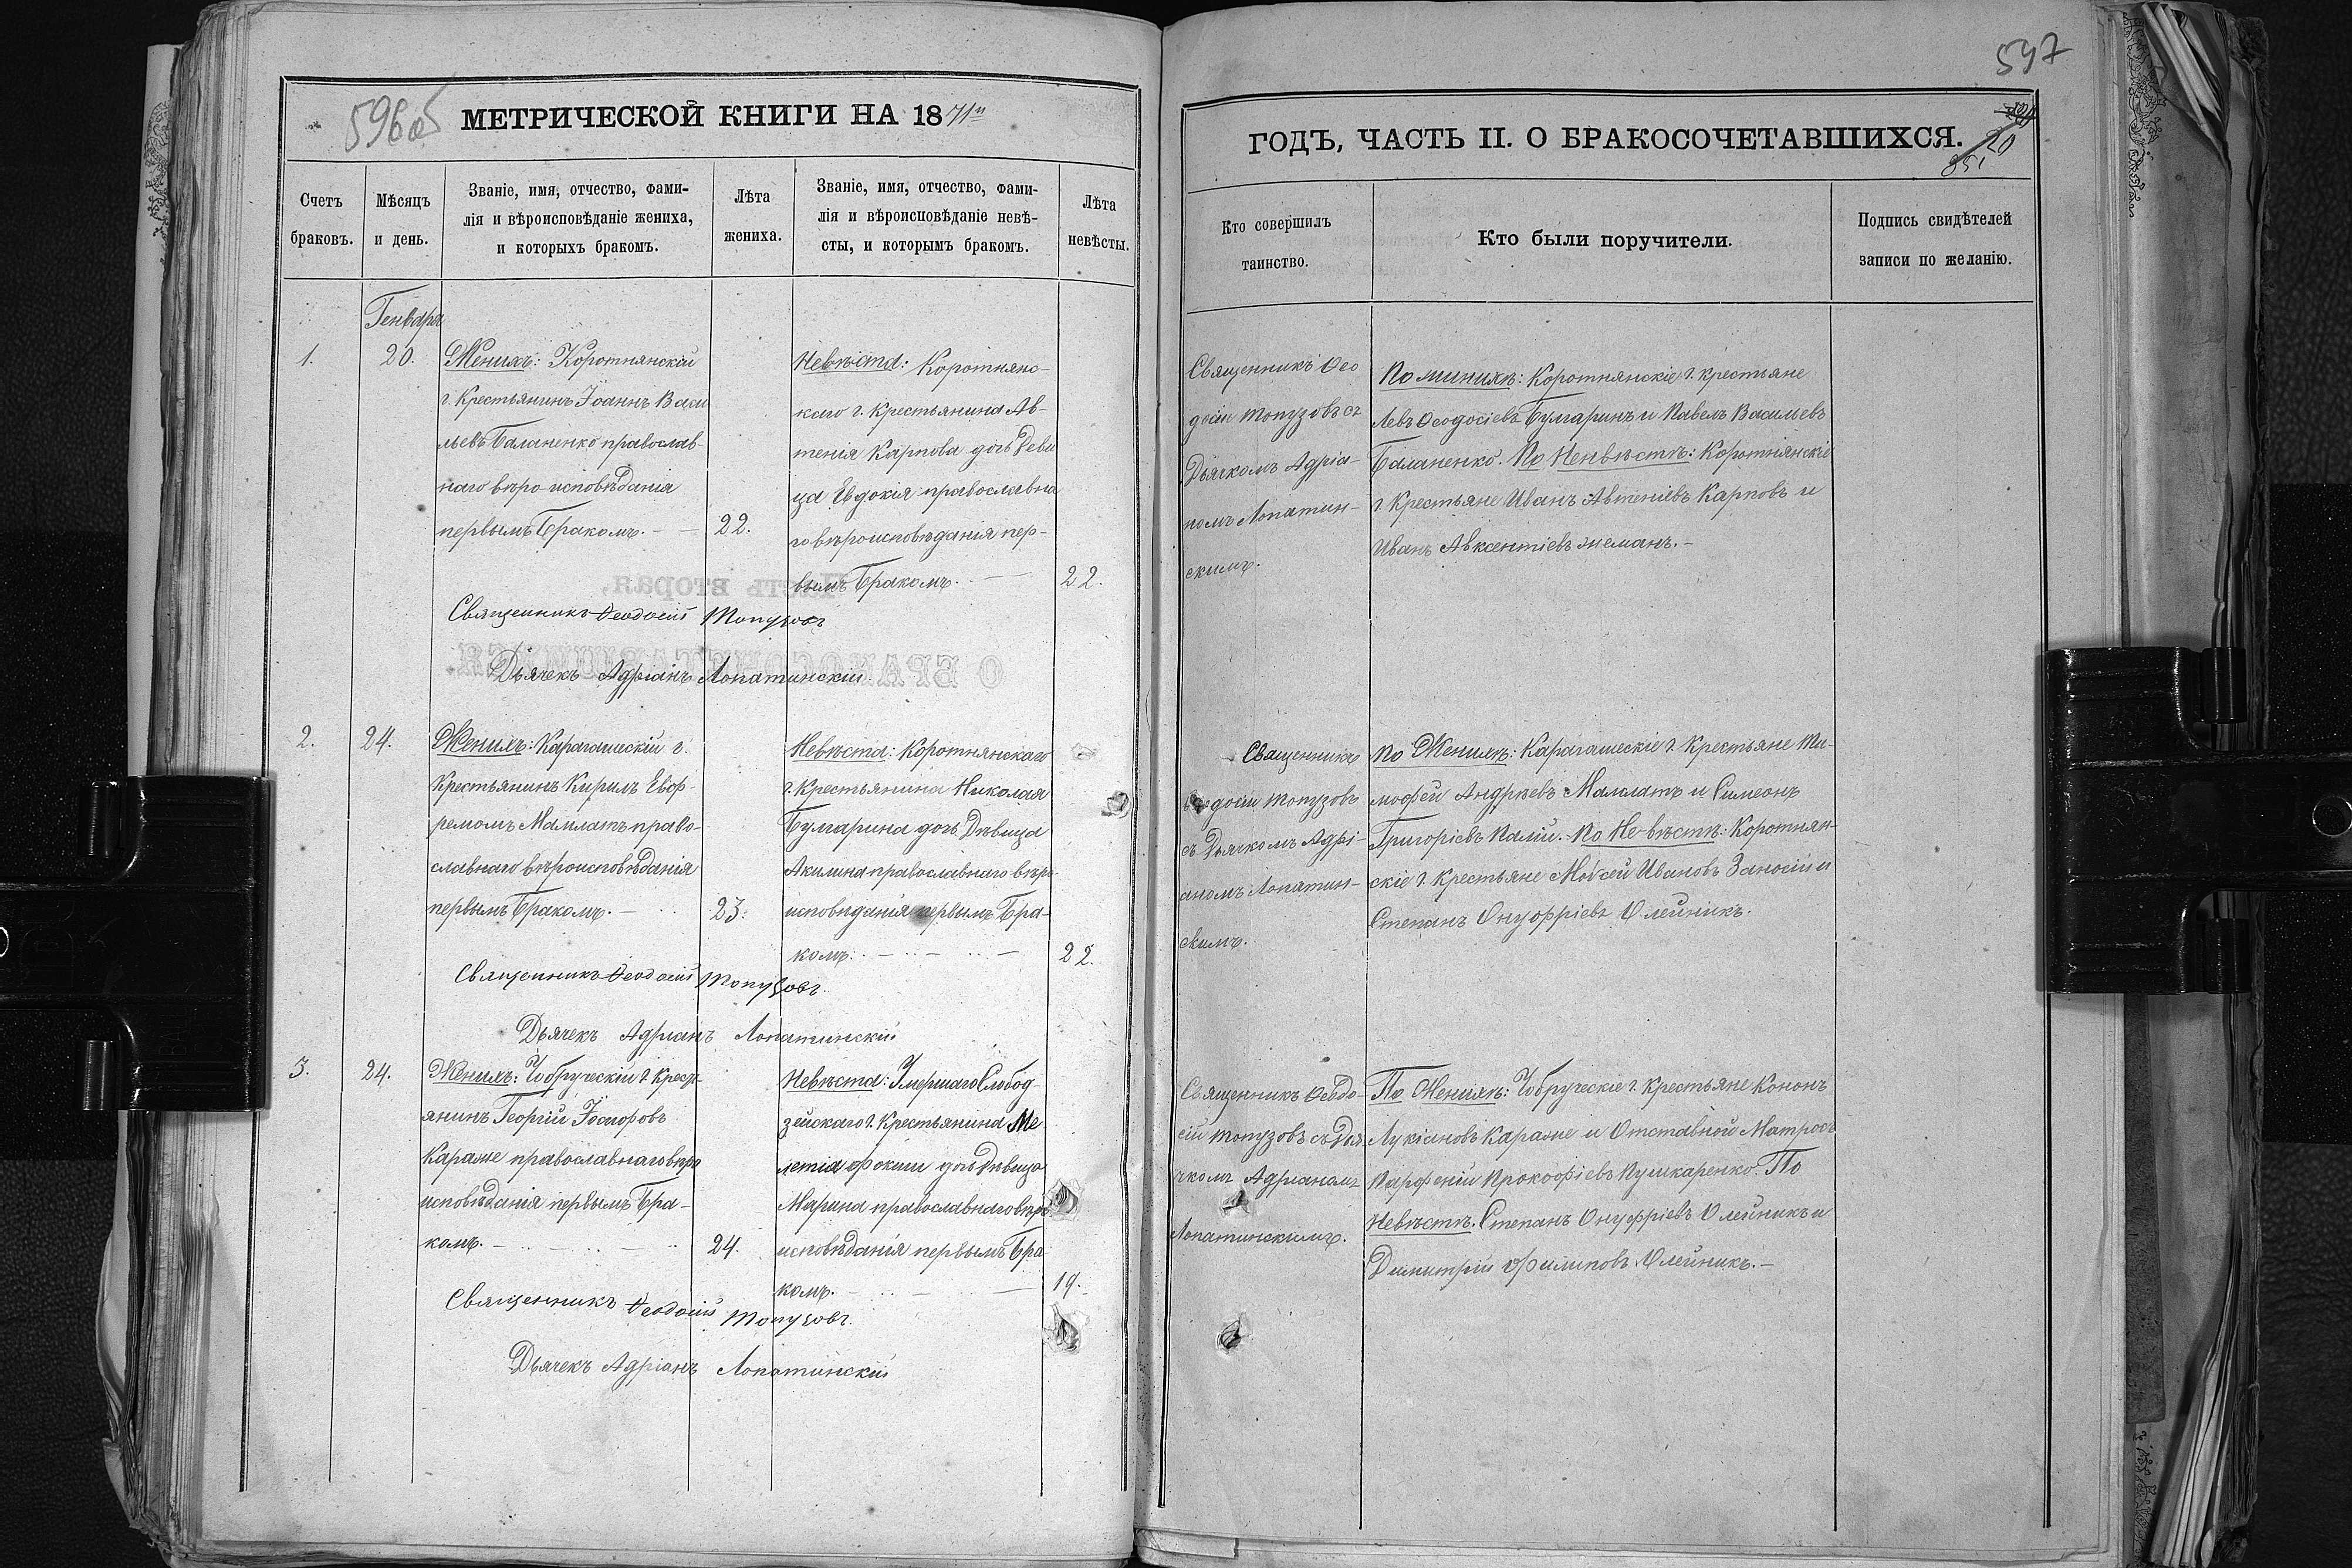 596об
МЕТРИЧЕСКОЙ КНИГИ НА 1871й
Счетъ
браковъ.
Мѣсяцъ
и день.
Званіе, имя, отчество, фами-
лія и вѣроисповѣданіе жениха,
и которыхъ бракомъ.
Лѣта
жениха.
Званіе, имя, отчество, фами-
лія и вѣроисповѣданіе невѣ-
сты, и которымъ бракомъ.
Лѣта
невѣсты.
Генваря
1.
20.
Женихъ: Коротнянскій
г. Крестьянинъ Іоаннъ Васи
льевъ Баланенко православ-
наго вѣро-исповѣданія
первымъ Бракомъ.
22.
Невѣста: Коротнянс-
каго г. Крестьянина Ав-
тенія Карпова дочь Деви
ца Евдокія православна
го вѣроисповѣданія пер-
вымъ Бракомъ.
22.
Священникъ Ѳеодосій Топузовъ
Дьячекъ Адріанъ Лопатинскій
2.
24.
Женихъ: Карагашскій г.
Крестьянинъ Кирилъ Евф-
ремовъ Мамлатъ право-
славнаго вѣроисповѣданія
первымъ Бракомъ.
23.
Невѣста: Коротнянскаго
г. Крестьянина Николая
Булгарина дочь Дѣвица
Акилина православнаго вѣро
исповѣданія первымъ Бра-
комъ.
22.
Священникъ Ѳеодосій Топузовъ.
Дьячекъ Адріанъ Лопатинскій
3.
24.
Женихъ: Чобручскій г. Крест-
янинъ Георгій Іосифовъ
Караже православнаго вѣро
исповѣданія первымъ Бра-
комъ.
24.
Невѣста: Умершаго Слобод-
зейскаго г. Крестьянина Ме
летія Фокши дочь Дѣвица
Марина православнаго вѣро
исповѣданія первымъ Бра
комъ.
19.
Священникъ Ѳеодосій Топузовъ.
Дьячекъ Адріанъ Лопатинскій
597
ГОДЪ, ЧАСТЬ II. О БРАКОСОЧЕТАВШИХСЯ.
Кто совершилъ
таинство.
Кто были поручители.
Подпись свидѣтелей
записи по желанію.
Священникъ Ѳео
досій Топузовъ съ
Дьячкомъ Адріа-
номъ Лопатин-
скимъ.
По жинихѣ: Коротнянскіе г. крестьяне
Левъ Ѳеодосіевъ Булгаринъ и Павелъ Васильевъ
Баланенко. По Ненвѣстѣ: Коротнянскіе
г. Крестьяне Иванъ Автеніевъ Карповъ и
Иванъ Авксентіевъ жеманъ.-
Священникъ
Ѳеодосій Топузовъ
съ Дьячкомъ Адрі-
аномъ Лопатин-
скимъ.
По Женихѣ: Карагашскіе г. Крестьяне Ти-
мофей Андрѣевъ Мамлатъ и Симеонъ
Григоріевъ Палій. По Невѣстѣ: Коротнян-
скіе г. Крестьяне Мойсей Ивановъ Заносій и
Степанъ Онуфріевъ Олейникъ.
Священникъ Ѳеодо-
сій Топузовъ съ Дья
чкомъ Адріаномъ
Лопатинскимъ.
По Женихѣ: Чобручскіе г. Крестьяне Кононъ
Лукіановъ Караже и Отставной Матросъ
Парфеній Прокофіевъ Пушкаренко. По
Невѣстѣ. Степанъ Онуфріевъ Олейникъ и
Димитрій Филиповъ Олейникъ.-